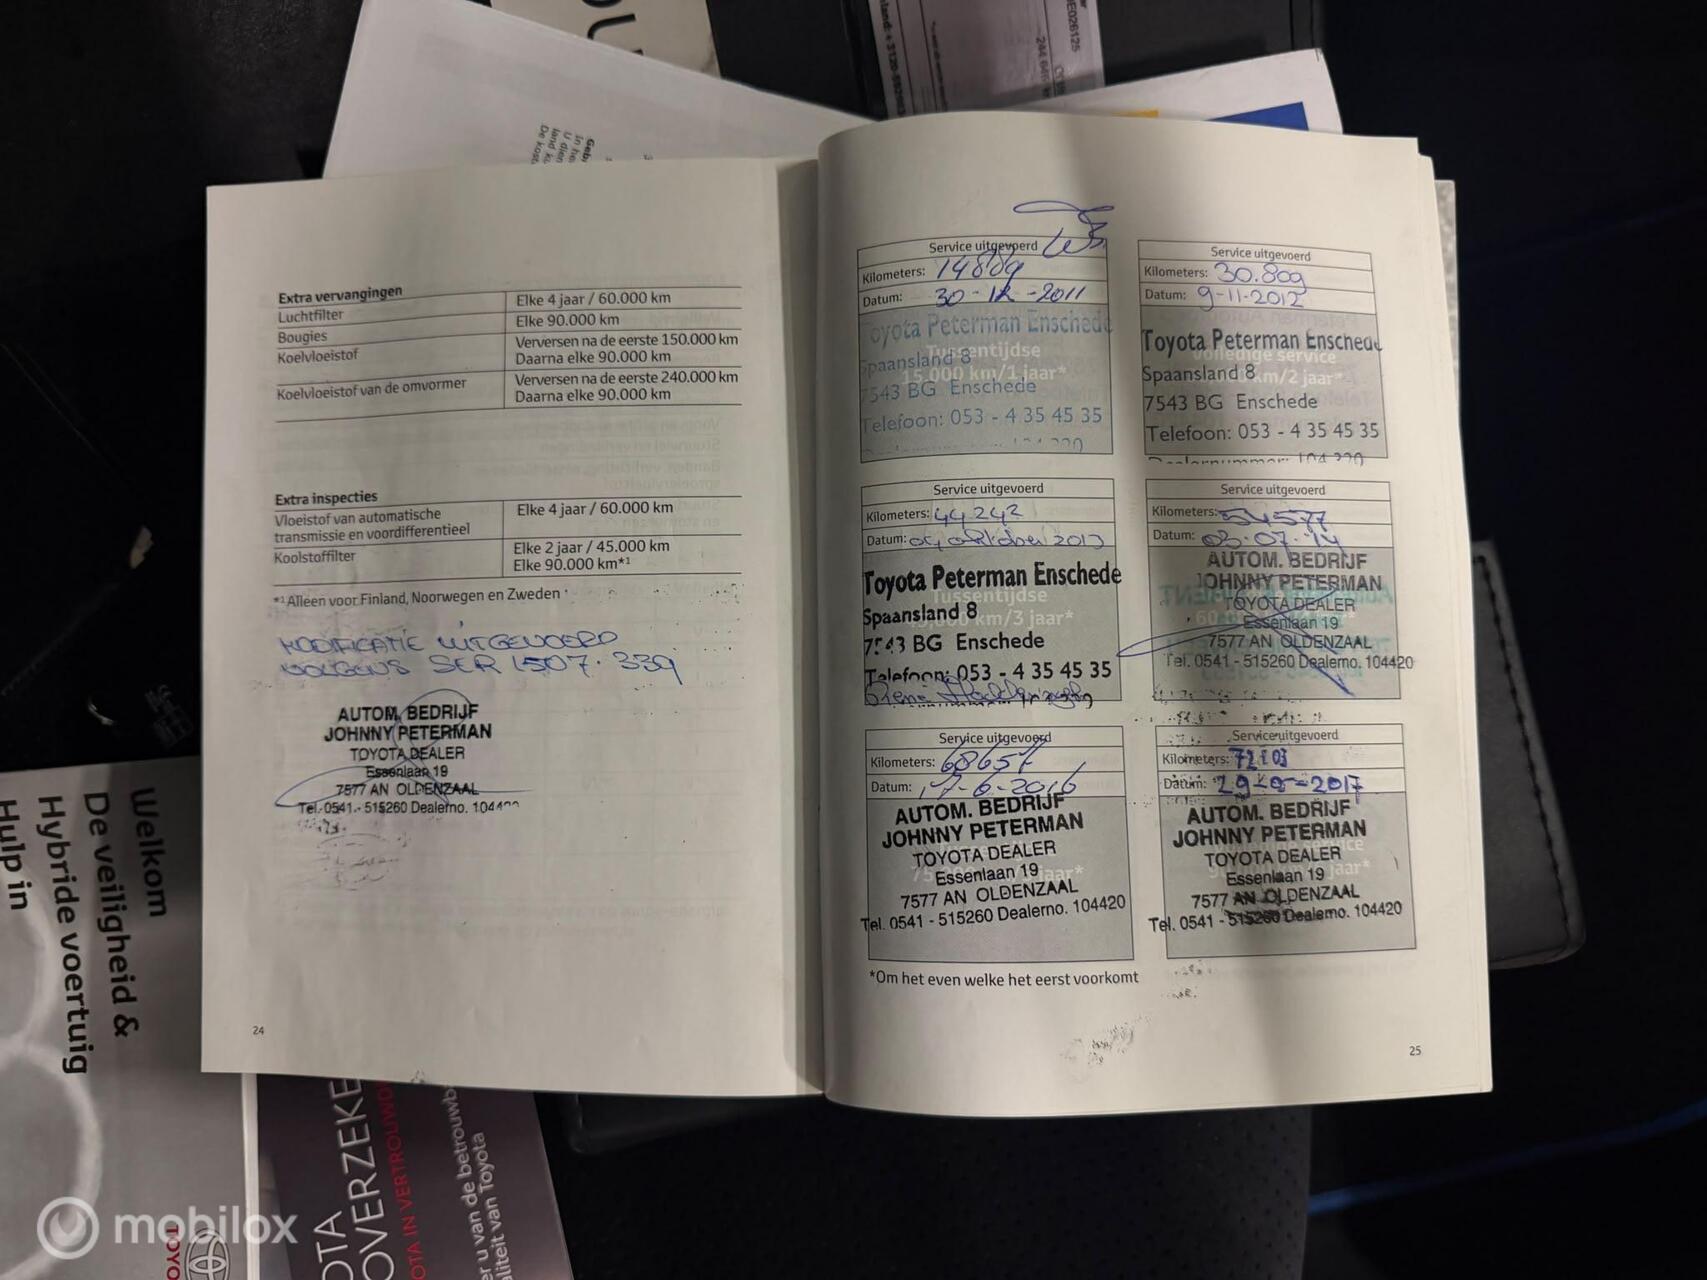 Extra vervangingen
Luchtfilter Elke 4 jaar / 60.000 km
Bougies Elke 90.000 km
Koelvloeistof Verversen na de eerste 150.000 km
Daarna elke 90.000 km
Koelvloeistof van de omvormer Verversen na de eerste 240.000 km
Daarna elke 90.000 km
Extra inspecties
Vloeistof van automatische
transmissie en voordifferentieel Elke 4 jaar / 60.000 km
Koolstoffilter Elke 2 jaar / 45.000 km
Elke 90.000 km*1
*1 Alleen voor Finland, Noorwegen en Zweden
MODIFICATIE UITGEVOERD
VOLGENS SER 1507.339
AUTOM. BEDRIJF
JOHNNY PETERMAN
TOYOTA DEALER
Essenlaan 19
7577 AN OLDENZAAL
Tel. 0541 - 515260 Dealerno.
24
Service uitgevoerd
Kilometers: 14889
Datum: 30-12-2011
Toyota Peterman Enschede
Tussentijdse
Spaansland 8
15.000 km/1 jaar*
7543 BG Enschede
Telefoon: 053 - 4 35 45 35
Service uitgevoerd
Kilometers: 30.809
Datum: 9-11-2012
Toyota Peterman Enschede
Volledige service
Spaansland 8
km/2 jaar*
7543 BG Enschede
Telefoon: 053 - 4 35 45 35
Service uitgevoerd
Kilometers: 44242
Datum: oktober 2013
Toyota Peterman Enschede
Tussentijdse
Spaansland 8
km/3 jaar*
7543 BG Enschede
Telefoon: 053 - 4 35 45 35
Service uitgevoerd
Kilometers: 54577
Datum: 03-07-14
AUTOM. BEDRIJF
JOHNNY PETERMAN
TOYOTA DEALER
Essenlaan 19
7577 AN OLDENZAAL
Tel. 0541 - 515260 Dealerno. 104420
Service uitgevoerd
Kilometers: 68657
Datum: 17-6-2016
AUTOM. BEDRIJF
JOHNNY PETERMAN
TOYOTA DEALER
Essenlaan 19
7577 AN OLDENZAAL
Tel. 0541 - 515260 Dealerno. 104420
Service uitgevoerd
Kilometers:
Datum:
AUTOM. BEDRIJF
JOHNNY PETERMAN
TOYOTA DEALER
Essenlaan 19
7577 AN OLDENZAAL
Tel. 0541 - 515260 Dealerno. 104420
*Om het even welke het eerst voorkomt
25
Welkom
De veiligheid &
Hybride voertuig
Hulp in
IN VERTROUWD
u van de
van Toyota
mobilox